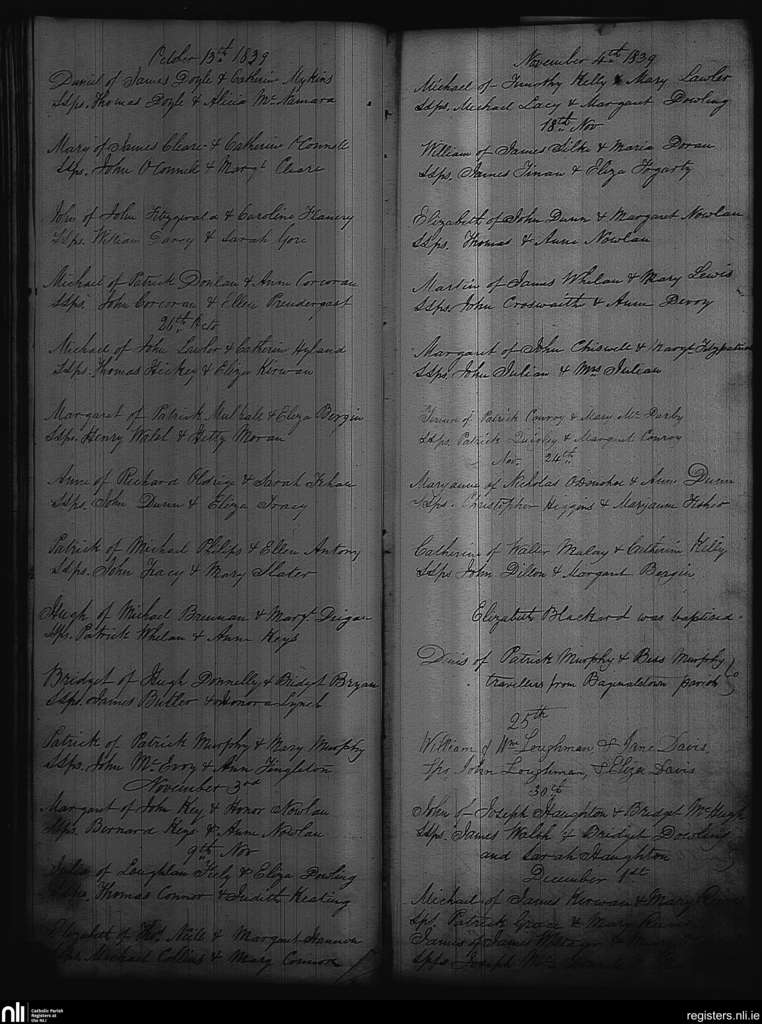 October 13th 1839
Daniel of James Doyle & Catherine Mykins
Ssps. Thomas Doyle & Alicia McNamara
Mary of James Cleare & Catherine O'Connell
Ssps. John O'Connell & Margt Cleare
John of John Fitzgerald & Caroline Flanery
Ssps. William Darcy & Sarah Gore
Michael of Patrick Donlan & Ann Corcoran
Ssps. John Corcoran & Ellen Prendergast
26th Octo
Michael of John Lawler & Catherin Hyland
Ssps. Thomas Hickey & Eliza Kirwan
Margaret of Patrick Mulhall & Eliza Bergin
Ssps. Henry Walsh & Hetty Moran
Anne of Richard Oldrige & Sarah
Ssps. John Dunn & Eliza Tracy
Patrick of Michael Philips & Ellen Antony
Ssps. John Tracy & Mary Slater
Hugh of Michael Brennan & Margt. Digan
Ssps. Patrick Whelan & Anne Keys
Bridget of Hugh Donnelly & Bridgt Bryan
Ssps. James Butler & Honora Lynch
Patrick of Patrick Murphy & Mary Murphy
Ssps. John McEvoy & Ann Singleton
November 3rd
Margaret of John Key & Honor Nowlan
Ssps. Bernard Keys & Anne Nowlan
9th Nov
Julia of Loughlan Fiely & Eliza Dowling
Ssps. Thomas Connor & Judith Keating
Elizabeth of Thos. & Margaret Hannon
Ssps. Michael Collins & Mary Connor
November 4th 1839
Michael of Timothy Kelly & Mary Lawler
Ssps. Michael Lacy & Margaret Dowling
18th Nov
William of James Silke & Maria Doran
Ssps. James Tinan & Eliza Fogarty
Elizabeth of John Dunn & Margaret Nowlan
Ssps. Thomas & Anne Nowlan
Martin of James Whelan & Mary Lewis
Ssps. John Croswaith & Anne Devoy
Margaret of John Chiswell & Margt Fitzpatrick
Ssps. John Julian & Mrs Julian
of Patrick Conroy & Mary McDarby
Ssps. Patrick & Margaret Conroy
Nov 24th
Maryanne of Nicholas O'Donohoe & Ann Dunn
Ssps. Christopher Higgins & Maryanne Fisher
Catherine of Walter Malory & Catherin Kelly
Ssps John Dillon & Margaret Bergin
Elizabeth Blackard was baptised.
Denis of Patrick Murphy & Bess Murphy
travellers from Bagnalstown parish
25th
William of Wm Loughman, & Jane Davis,
Sps John Loughman, & Eliza Davis
30th
John of Joseph Haughton & Bridget McHugh
Ssps. James Walsh & Bridget Dowling
and Sarah Haughton
December 1st
Michael of James Kirwan & Mary
Sps. Patrick Grace & Mary
James of James &
Spps Joseph
nli Catholic Parish
Registers at
the NLI
registers.nli.ie